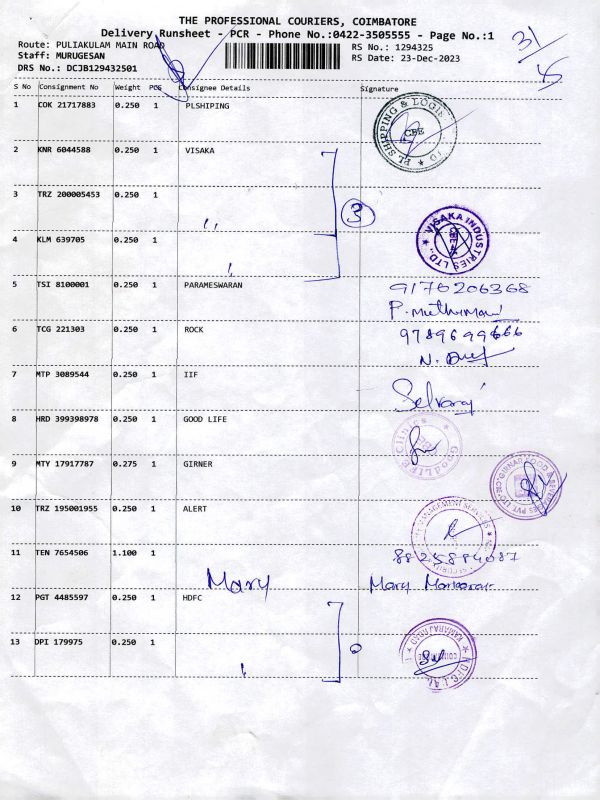 THE PROFESSIONAL COURIERS, COIMBATORE
Delivery Runsheet - PCR - Phone No.:0422-3505555 - Page No.:1
Route: PULIAKULAM MAIN ROAD
Staff: MURUGESAN
DRS No.: DCJB129432501
RS No.: 1294325
RS Date: 23-Dec-2023
31/
45
S No Consignment No Weight PCS Consignee Details Signature
1 COK 21717883 0.250 1 PLSHIPING
PL SHIPPING & LOGIS
CBE
2 KNR 6044588 0.250 1 VISAKA
3 TRZ 200005453 0.250 1 ,,
3
4 KLM 639705 0.250 1 ,,
VISAKA INDUSTRIES LTD.
5 TSI 8100001 0.250 1 PARAMESWARAN 9176206368
P. Muthumani
6 TCG 221303 0.250 1 ROCK 9789699666
7 MTP 3089544 0.250 1 IIF Selvaraj
8 HRD 399398978 0.250 1 GOOD LIFE
GoodLIFE Clinics
9 MTY 17917787 0.275 1 GIRNER
GIRNAR FOOD & BEVERAGES PVT. LTD.
10 TRZ 195001955 0.250 1 ALERT
MANAGEMENT SERVICES
11 TEN 7654506 1.100 1 Mary
Mary
12 PGT 4485597 0.250 1 HDFC
13 DPI 179975 0.250 1 ,,
KAMARAJ ROAD